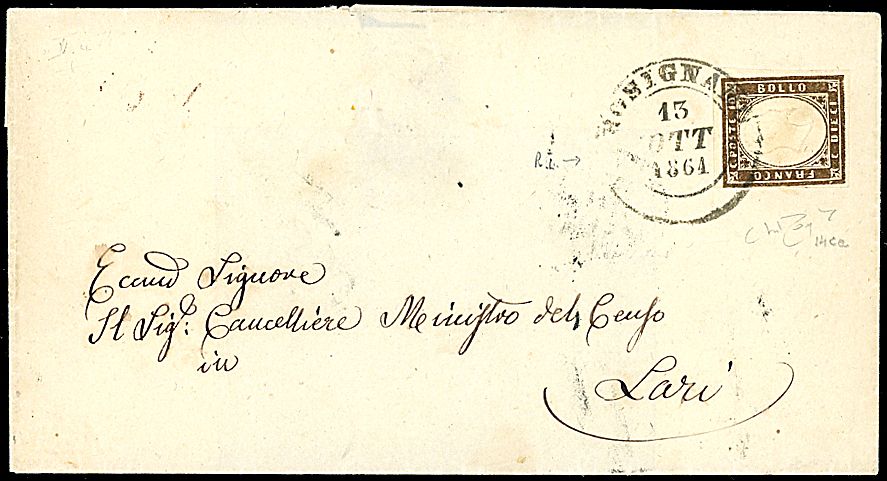 ROSIGNA
13
OTT
1861
BOLLO
C. POSTE 10
C. DIECI
FRANCO
R.L. →
14Ca
Eccmo Signore
Il Sigr: Cancelliere Ministro del Censo
in
Lari